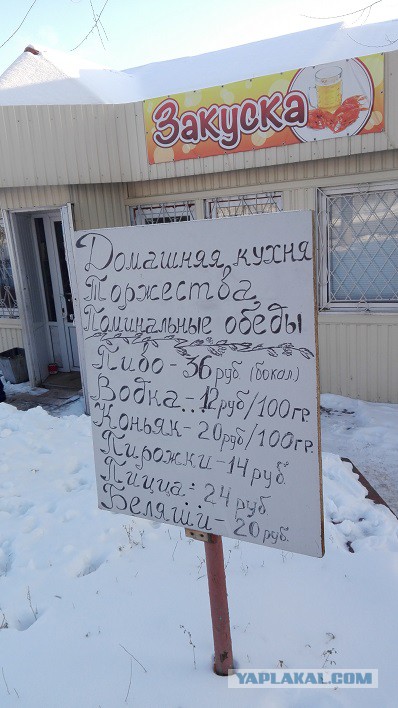 Закуска
Домашняя кухня
Торжества,
Поминальные обеды
Пиво - 36 руб (бокал)
Водка... 12 руб/100гр.
Коньяк - 20руб/100гр.
Пирожки - 14 руб.
Пицца: 24 руб.
Беляши - 20 руб.
YAPLAKAL.COM